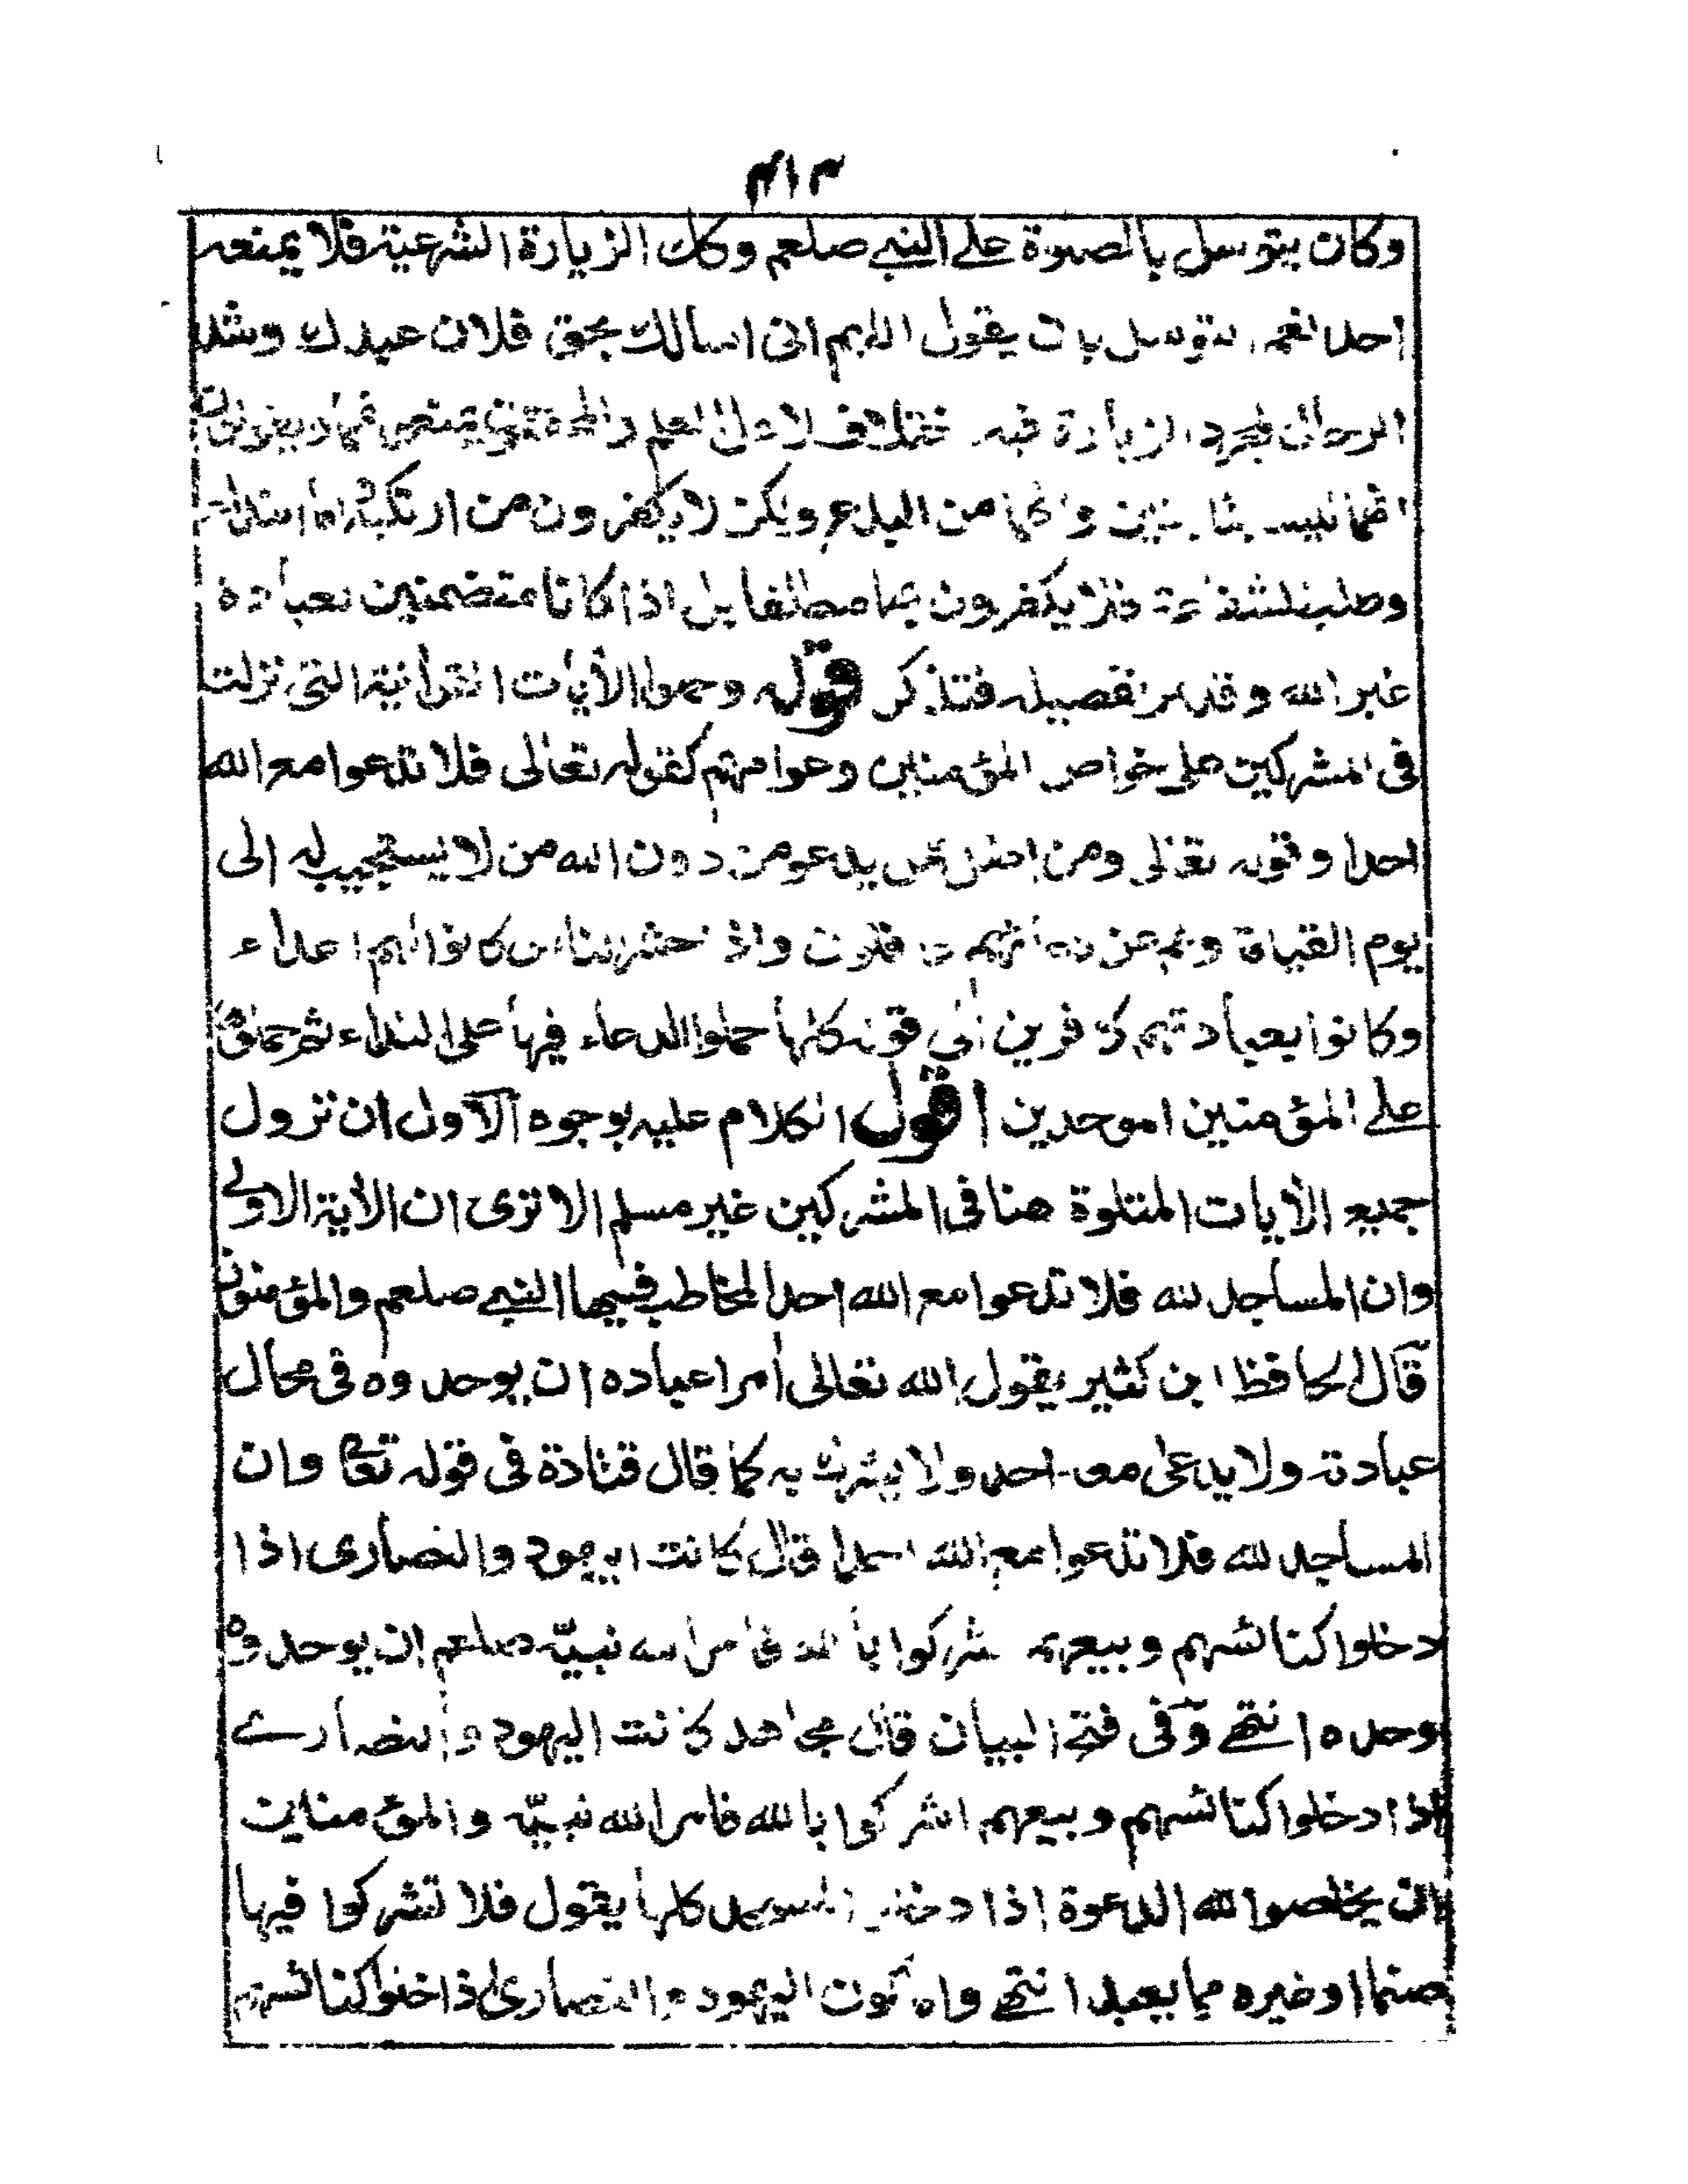 ٣١٣
وكان يتوسل بالصلوة على النبي صلعم وكك الزيارة الشرعية فلا يمنعه
احد نعم التوسل بان يقول اللهم انى اسالك بحق فلان عبدك وشد
الرحال لمجرد الزيارة فيه اختلاف لاهل العلم
من البدع ولكن لا يكفرون من ارتكبهما واما النداء
وطلب الشفاعة فلا يكفرون بهما مطلقا بل اذا كانا متضمنين لعبادة
غير الله وقد مر تفصيله فتذكر قوله وحملوا الأيات القرأنية التى نزلت
فى المشركين على خواص المؤمنين وعوامهم كقوله تعالى فلا تدعوا مع الله
احدا وقوله تعالى ومن اضل ممن يدعو من دون الله من لا يستجيب له الى
يوم القيامة وهم عن دعائهم غافلون واذا حشر الناس كانوا لهم اعداء
وكانوا بعبادتهم كافرين الى قوله كلها حملوا الدعاء فيها على النداء ثم حملوها
على المؤمنين الموحدين اقول الكلام عليه بوجوه الآول ان نزول
جميع الأيات المتلوة هنا فى المشركين غير مسلم الا ترى ان الأية الاولى
وان المساجد لله فلا تدعوا مع الله احدا المخاطب فيها النبي صلعم والمؤمنون
قال الحافظ ابن كثير يقول الله تعالى أمرا عباده ان يوحدوه فى محال
عبادته ولا يدعى معه احد ولا يشرك به كما قال قتادة فى قوله تعا وان
المساجد لله فلا تدعوا مع الله احدا قال كانت اليهود والنصارى اذا
دخلوا كنائسهم وبيعهم اشركوا بالله فامر الله نبيّه صلعم ان يوحدوه
وحده انتهى وفى فتح البيان قال مجاهد كانت اليهود والنصارى
اذا دخلوا كنائسهم وبيعهم اشركوا بالله فامر الله نبيّه والمؤمنين
ان يخلصوا لله الدعوة اذا دخلوا المساجد كلها يقول فلا تشركوا فيها
صنما او غيره مما يعبد انتهى واما كون اليهود والنصارى اذا دخلوا كنائسهم